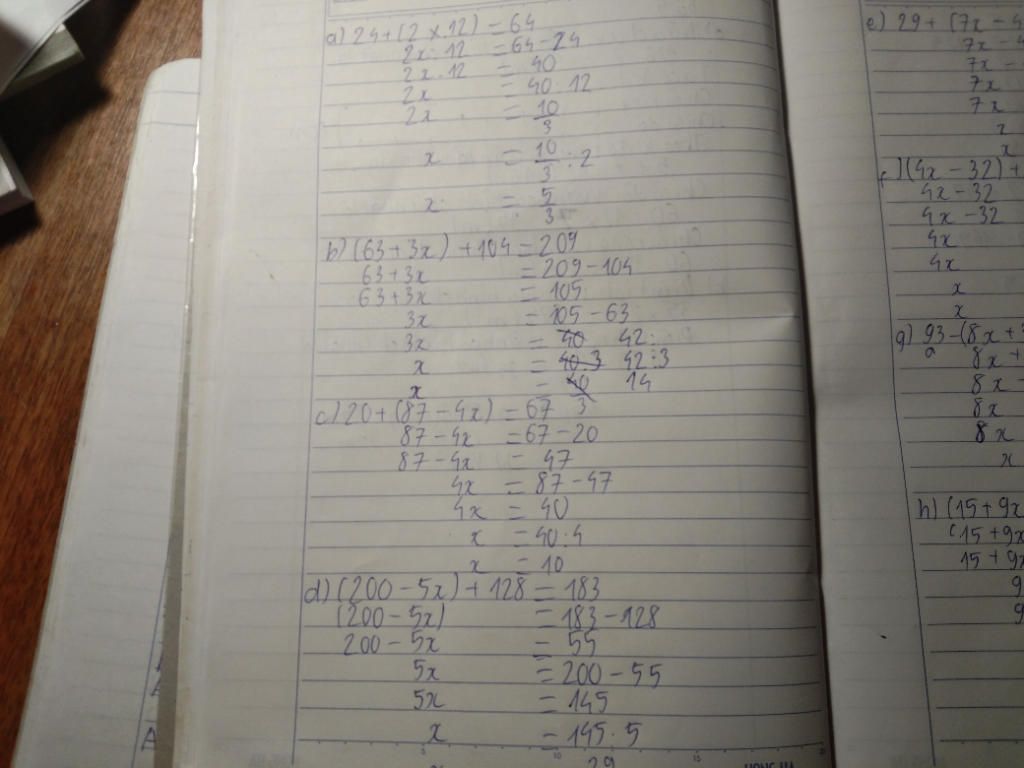 a) 24 + (2 x 12) = 64
2x . 12 = 64 - 24
2x . 12 = 40
2x = 40 . 12
2x = 10/3
x = 10/3 : 2
x = 5/3
b) (63 + 3x) + 104 = 209
63 + 3x = 209 - 104
63 + 3x = 105
3x = 105 - 63
3x = 40 42
x = 40 : 3 42 : 3
x = 40/3 14
c) 20 + (87 - 4x) = 67
87 - 4x = 67 - 20
87 - 4x = 47
4x = 87 - 47
4x = 40
x = 40 : 4
x = 10
d) (200 - 5x) + 128 = 183
(200 - 5x) = 183 - 128
200 - 5x = 55
5x = 200 - 55
5x = 145
x = 145 : 5
29
e) 29 + (7x - 4
7x - 4
7x -
7x
7x
x
x
(4x - 32) +
4x - 32
4x - 32
4x
4x
x
x
g) 93 - (8x + 3
8x +
8x -
8x
8x
x
h) (15 + 9x
(15 + 9x
15 + 9x
9
9